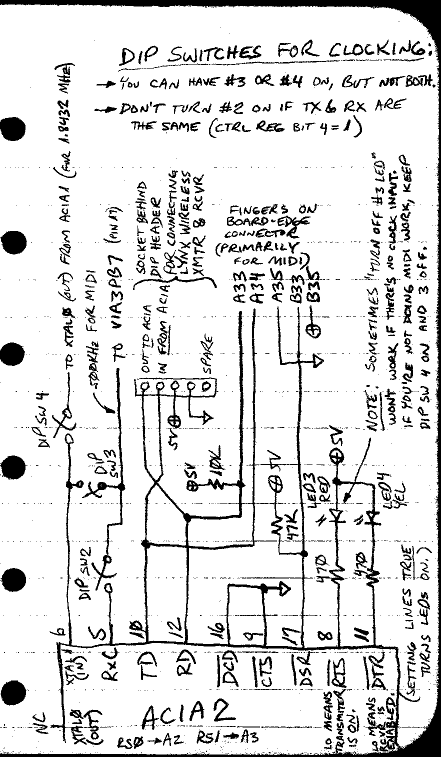 DIP SWITCHES FOR CLOCKING:
→ YOU CAN HAVE #3 OR #4 ON, BUT NOT BOTH.
→ DON'T TURN #2 ON IF TX & RX ARE
THE SAME (CTRL REG BIT 4 = 1)
TO XTALO (OUT) FROM ACIA1 (FOR 1.8432 MHz)
500KHz FOR MIDI
TO VIA3PB7 (PIN 17)
SOCKET BEHIND
DIP HEADER
FOR CONNECTING
LYNX WIRELESS
XMTR & RCVR
OUT TO ACIA
IN FROM ACIA
SPARE
FINGERS ON
BOARD-EDGE
CONNECTOR
(PRIMARILY
FOR MIDI)
A33
A34
A35
B33
B35
NOTE: SOMETIMES "TURN OFF #3 LED"
WON'T WORK IF THERE'S NO CLOCK INPUT.
IF YOU'RE NOT DOING MIDI WORK, KEEP
DIP SW 4 ON AND 3 OFF.
DIP SW 4
DIP
SW3
DIP SW2
5V
5V
10K
5V
47K
LED3
RED
5V
LED4
YEL
470
470
6
5
10
12
16
9
17
8
11
N/C
XTALO
(OUT)
XTAL1
(IN)
RxC
TD
RD
DCD
CTS
DSR
RTS
DTR
ACIA2
RS0→A2 RS1→A3
LO MEANS
TRANSMITTER
IS ON.
LO MEANS
RCVR IS
ENABLED.
(SETTING LINES TRUE
TURNS LEDS ON.)